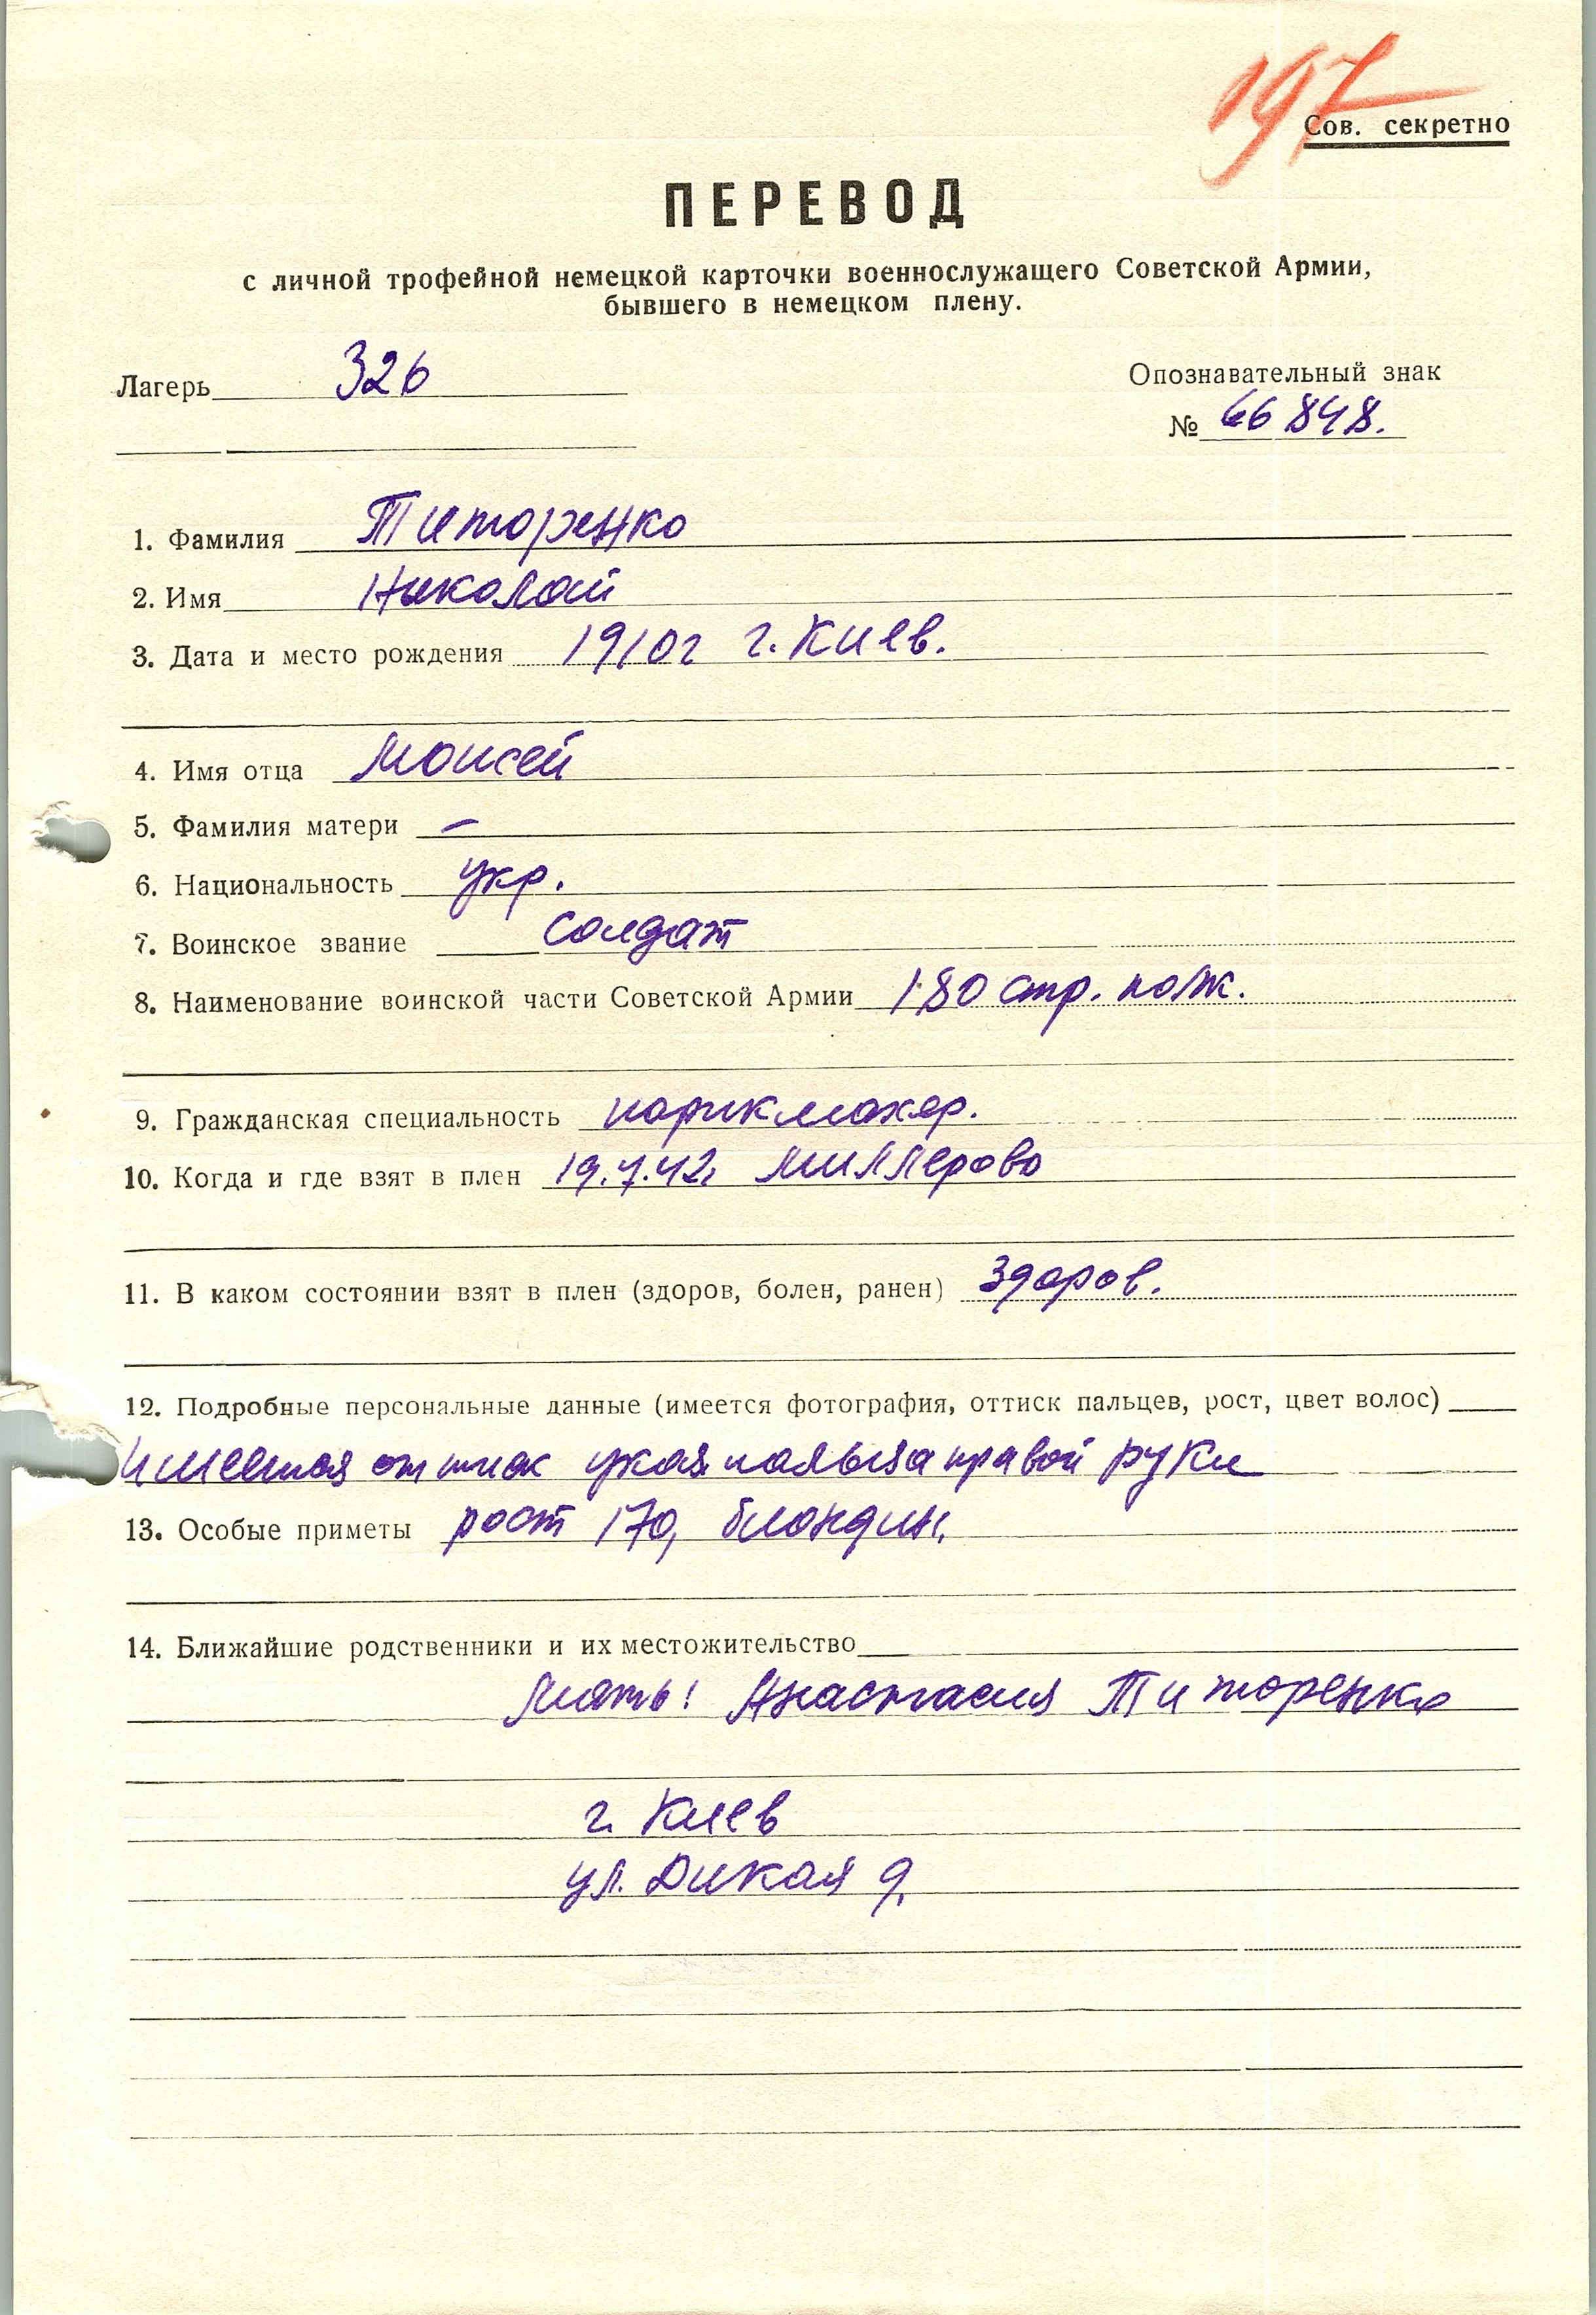 197
Сов. секретно
ПЕРЕВОД
с личной трофейной немецкой карточки военнослужащего Советской Армии,
бывшего в немецком плену.
Лагерь 326
Опознавательный знак
№ 66848.
1. Фамилия Титоренко
2. Имя Николай
3. Дата и место рождения 1910г г. Киев.
4. Имя отца Моисей
5. Фамилия матери –
6. Национальность укр.
7. Воинское звание солдат
8. Наименование воинской части Советской Армии 180 стр. полк.
9. Гражданская специальность парикмахер.
10. Когда и где взят в плен 19.7.42. Миллерово
11. В каком состоянии взят в плен (здоров, болен, ранен) здоров.
12. Подробные персональные данные (имеется фотография, оттиск пальцев, рост, цвет волос)
имеется оттиск указ. пальца правой руки
13. Особые приметы рост 170, блондин.
14. Ближайшие родственники и их местожительство
Мать: Анастасия Титоренко
г. Киев
ул. Дикая 9.